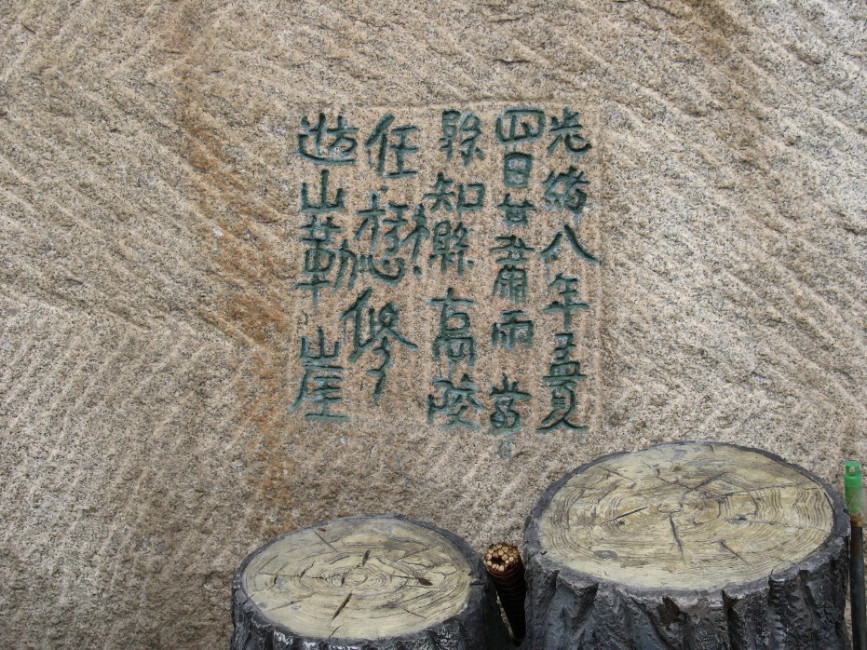 光緒八年孟夏
四日甘肅兩當
縣知縣高陵
任懋修
遊山勒崖